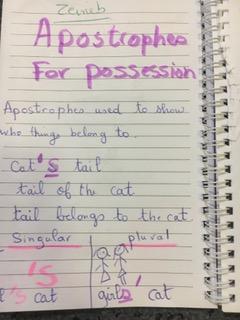 Zeineb
Apostrophes
For possession
Apostrophes used to show
who things belong to.
Cat's tail
tail of the cat
tail belongs to the cat
Singular plural
's
's cat girls' cat